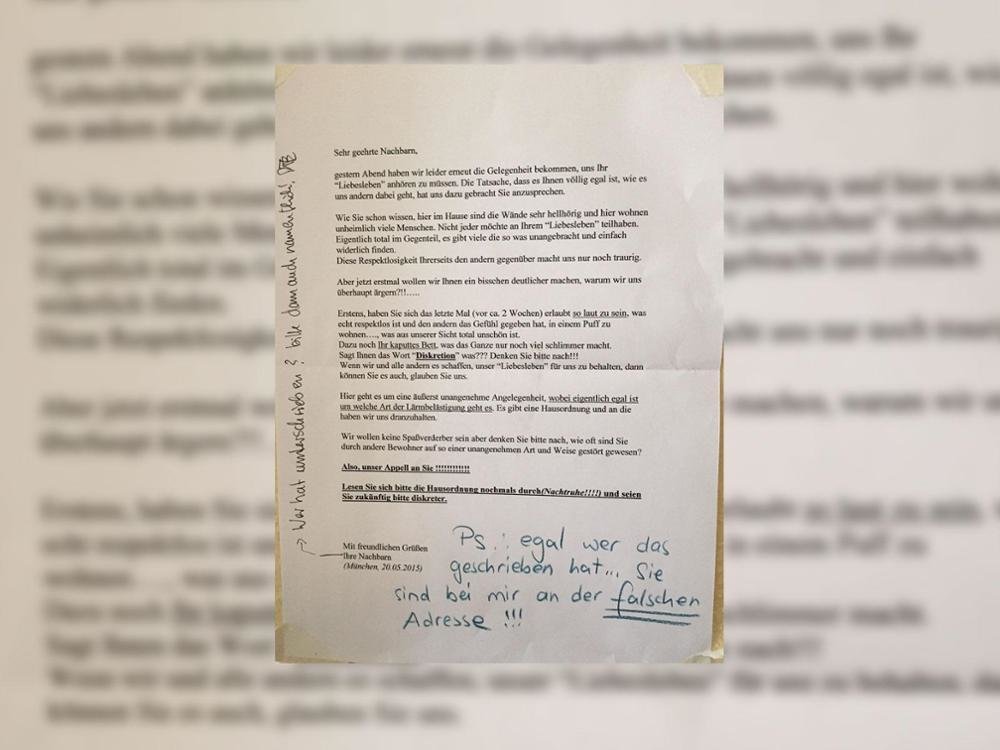 Sehr geehrte Nachbarn,
gestern Abend haben wir leider erneut die Gelegenheit bekommen, uns Ihr
"Liebesleben" anhören zu müssen. Die Tatsache, dass es Ihnen völlig egal ist, wie es
uns andern dabei geht, hat uns dazu gebracht Sie anzusprechen.
Wie Sie schon wissen, hier im Hause sind die Wände sehr hellhörig und hier wohnen
unheimlich viele Menschen. Nicht jeder möchte an Ihrem "Liebesleben" teilhaben.
Eigentlich total im Gegenteil, es gibt viele die so was unangebracht und einfach
widerlich finden.
Diese Respektlosigkeit Ihrerseits den andern gegenüber macht uns nur noch traurig.
Aber jetzt erstmal wollen wir Ihnen ein bisschen deutlicher machen, warum wir uns
überhaupt ärgern?!!.....
Erstens, haben Sie sich das letzte Mal (vor ca. 2 Wochen) erlaubt so laut zu sein, was
echt respektlos ist und den andern das Gefühl gegeben hat, in einem Puff zu
wohnen...., was aus unserer Sicht total unschön ist.
Dazu noch Ihr kaputtes Bett, was das Ganze nur noch viel schlimmer macht.
Sagt Ihnen das Wort "Diskretion" was??? Denken Sie bitte nach!!!
Wenn wir und alle andern es schaffen, unser "Liebesleben" für uns zu behalten, dann
können Sie es auch, glauben Sie uns.
Hier geht es um eine äußerst unangenehme Angelegenheit, wobei eigentlich egal ist
um welche Art der Lärmbelästigung geht es. Es gibt eine Hausordnung und an die
haben wir uns dranzuhalten.
Wir wollen keine Spaßverderber sein aber denken Sie bitte nach, wie oft sind Sie
durch andere Bewohner auf so einer unangenehmen Art und Weise gestört gewesen?
Also, unser Appell an Sie !!!!!!!!!!!!
Lesen Sie sich bitte die Hausordnung nochmals durch(Nachtruhe!!!!) und seien
Sie zukünftig bitte diskreter.
Mit freundlichen Grüßen
Ihre Nachbarn
(München, 20.05.2015)
→ Wer hat unterschrieben? bitte dann auch namentlich!
Ps.: egal wer das
geschrieben hat... Sie
sind bei mir an der falschen
Adresse !!!